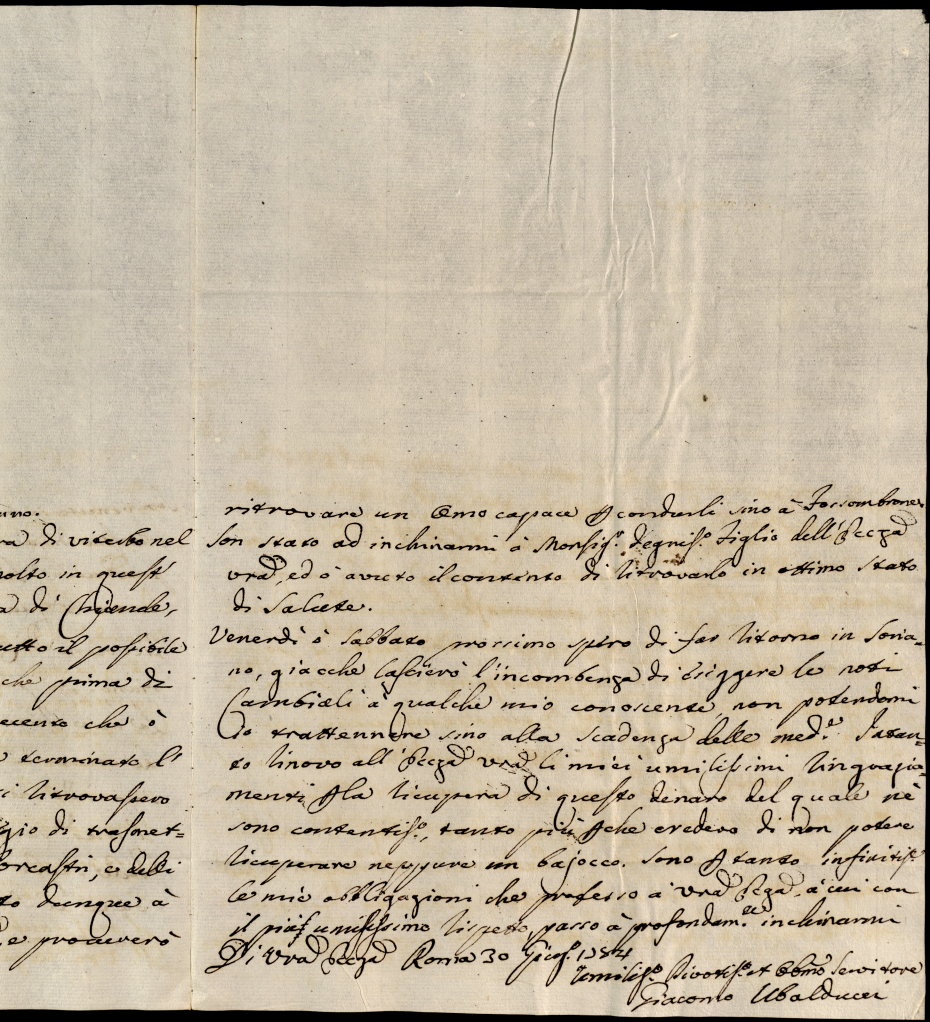 uno.
ra di viterbo nel
molto in quest'
a di
utto il possibile
che prima di
ecento che ò
e terminato l'
i litrovassero
gio di trasonet=
, e delli
to dunque à
e procurerò
ritrovare un Omo capace p condurli sino à Fossombrone
Son stato ad inchinarmi à Monsig.r degnis.o Figlio dell'Eccza
vra, ed ò avuto il contento di litrovarlo in ottimo stato
di Salute.
Venerdì ò Sabbato prossimo spero di far litorno in Soria=
no, giacche lascierò l'incombenza di esiggere le noti
Cambiali à qualche mio conoscente, non potendomi
io trattennere sino alla scadenza delle med.e Intan=
to linovo all'Eccza vra li miei umilissimi lingrazia=
menti p la licupera di questo denaro del quale nè
sono contentis.o, tanto più p che credevo di non potere
licuperare neppure un bajocco. Sono p tanto infinitis.e
le mie obbligazioni che professo a vra Ecza, à cui con
il più umilissimo lispetto passo à profondam.te inchinarmi
Di Vra Eccza Roma 30 Giug.o
Umilis.o Divotis.o et Obmo Servitore
Giacomo Ubalducci